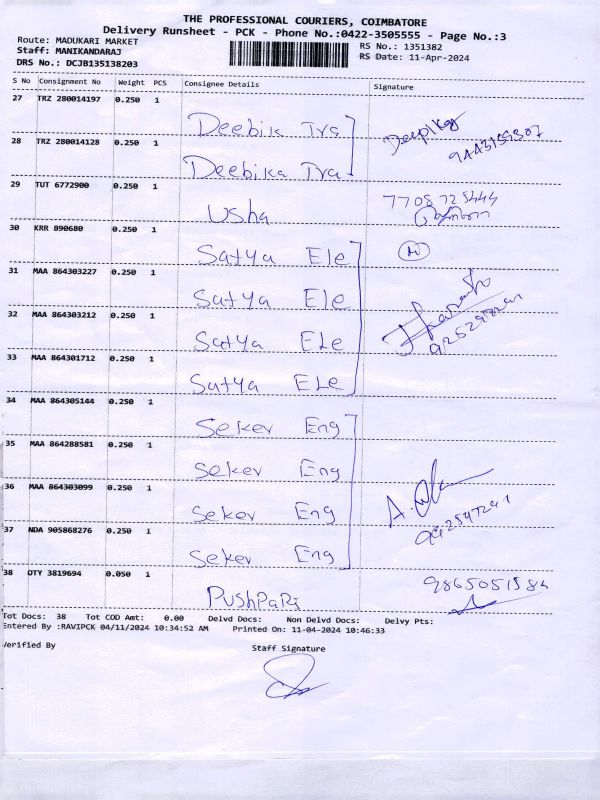 THE PROFESSIONAL COURIERS, COIMBATORE
Delivery Runsheet - PCK - Phone No.:0422-3505555 - Page No.:3
Route: MADUKARI MARKET RS No.: 1351382
Staff: MANIKANDARAJ RS Date: 11-Apr-2024
DRS No.: DCJB135138203
S No Consignment No Weight PCS Consignee Details Signature
27 TRZ 280014197 0.250 1 Deebik Trs
28 TRZ 280014128 0.250 1 Deebika Tra
29 TUT 6772900 0.250 1 Usha
30 KRR 890680 0.250 1 Satya Ele
31 MAA 864303227 0.250 1 Satya Ele
32 MAA 864303212 0.250 1 Satya Ele
33 MAA 864301712 0.250 1 Satya Ele
34 MAA 864305144 0.250 1 Seker Eng
35 MAA 864288581 0.250 1 Seker Eng
36 MAA 864303099 0.250 1 Seker Eng
37 NDA 905868276 0.250 1 Seker Eng
38 OTY 3819694 0.050 1 PUShPaRj
Tot Docs: 38 Tot COD Amt: 0.00 Delvd Docs: Non Delvd Docs: Delvy Pts:
Entered By :RAVIPCK 04/11/2024 10:34:52 AM Printed On: 11-04-2024 10:46:33
Verified By Staff Signature